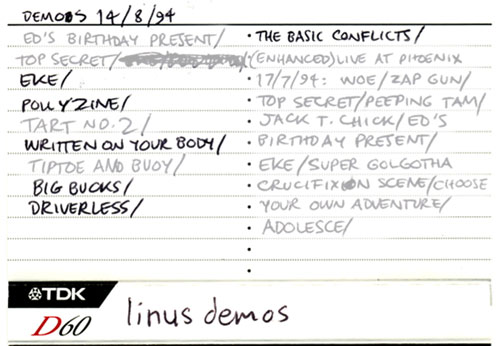 DEMOS 14/8/94
ED'S BIRTHDAY PRESENT/
TOP SECRET/
EKE/
POLLYZINE/
TART NO.2/
WRITTEN ON YOUR BODY/
TIPTOE AND BUOY/
BIG BUCKS/
DRIVERLESS/
• THE BASIC CONFLICTS/
(ENHANCED) LIVE AT PHOENIX
• 17/7/94: WOE/ZAP GUN/
• TOP SECRET/PEEPING TAM/
• JACK T. CHICK/ED'S
• BIRTHDAY PRESENT/
• EKE/SUPER GOLGOTHA
• CRUCIFIXION SCENE/CHOOSE
• YOUR OWN ADVENTURE/
• ADOLESCE/
TDK
D60
linus demos